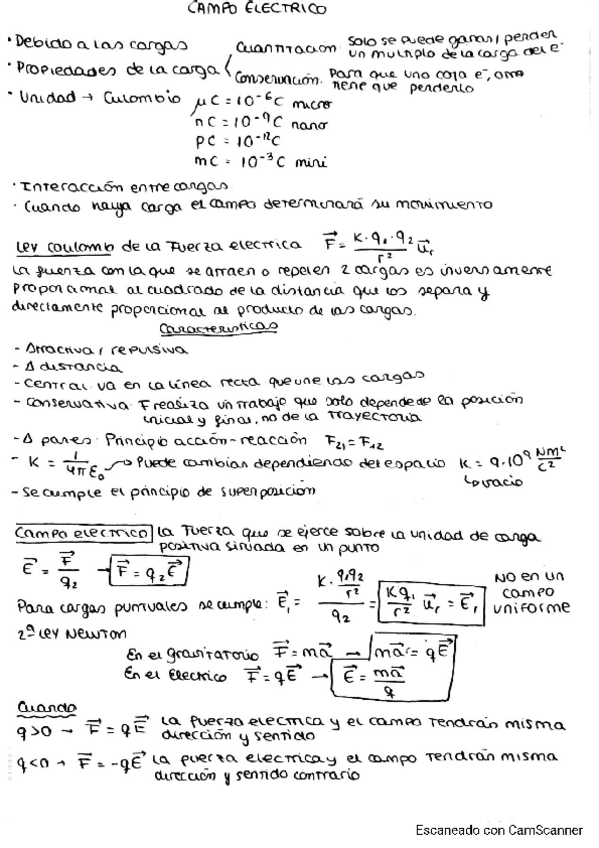 CAMPO ELECTRICO
· Debido a las cargas
· Propiedades de la carga < Cuantización: Solo se puede ganar/perder un multiplo de la carga del e-
Conservación: Para que uno coja e-, otro tiene que perderlo
· Unidad → Culombio μC = 10⁻⁶C micro
nC = 10⁻⁹C nano
pC = 10⁻¹²C
mC = 10⁻³C mili
· Interacción entre cargas
· Cuando haya carga el campo determinará su movimiento
Ley coulomb de la Fuerza electrica F⃗ = K·q₁·q₂/r² u⃗r
La fuerza con la que se atraen o repelen 2 cargas es inversamente
proporcional al cuadrado de la distancia que los separa y
directamente proporcional al producto de las cargas.
Caracteristicas
- Atractiva/repulsiva
- Δ distancia
- Central: va en la línea recta que une las cargas
- Conservativa: F realiza un trabajo que solo depende de la posición
inicial y final, no de la trayectoria
- Δ pares: Principio acción-reacción F₂₁ = F₁₂
- K = 1/4πε₀ → Puede cambiar dependiendo del espacio K = 9·10⁹ Nm²/C²
↳ vacio
- Se cumple el principio de superposición
Campo electrico La Fuerza que se ejerce sobre la unidad de carga
positiva situada en un punto
E⃗ = F⃗/q₂ → F⃗ = q₂E⃗
Para cargas puntuales se cumple: E⃗₁ = (K·q₁q₂/r²)/q₂ = Kq₁/r² u⃗r = E⃗₁ NO en un campo uniforme
2ª Ley Newton
En el gravitatorio F⃗ = ma⃗ → ma⃗ = qE⃗
En el Electrico F⃗ = qE⃗ → E⃗ = ma⃗/q
Cuando
q>0 → F⃗ = qE⃗ La fuerza electrica y el campo tendrán misma
dirección y sentido
q<0 → F⃗ = -qE⃗ La fuerza electrica y el campo tendrán misma
dirección y sentido contrario
Escaneado con CamScanner